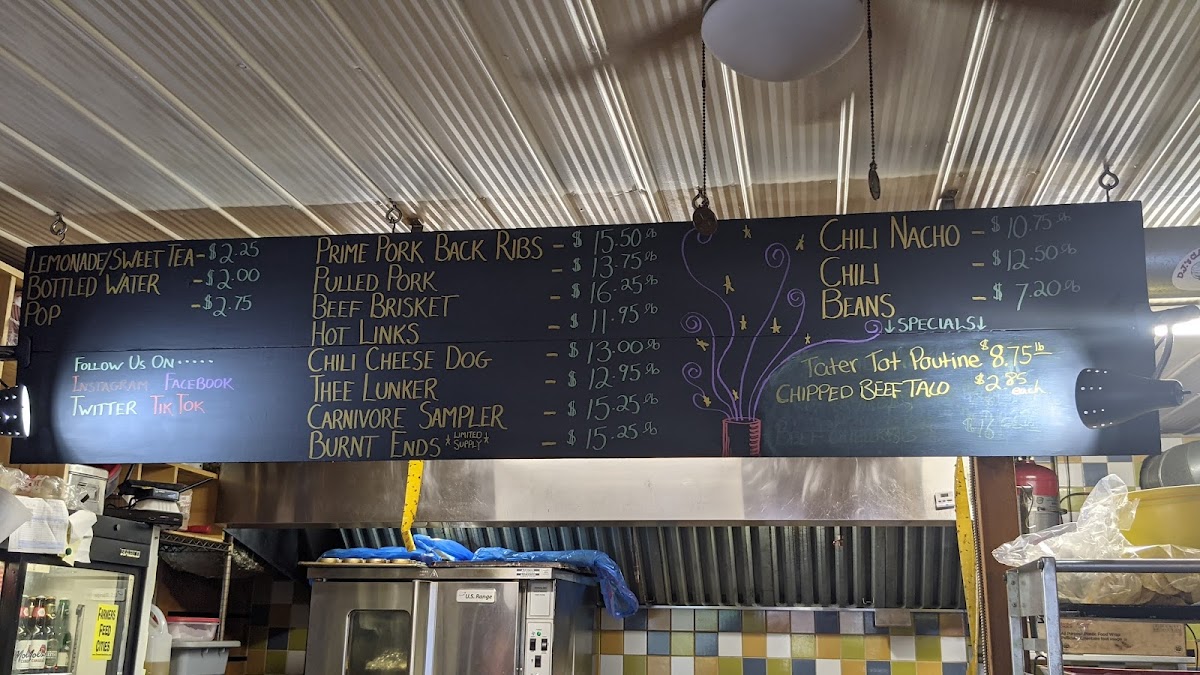 LEMONADE/SWEET TEA-$2.25
BOTTLED WATER -$2.00
POP -$2.75
FOLLOW US ON.....
INSTAGRAM FACEBOOK
TWITTER TIK TOK
PRIME PORK BACK RIBS - $15.50 lb
PULLED PORK - $13.75 lb
BEEF BRISKET - $16.25 lb
HOT LINKS - $11.95 lb
CHILI CHEESE DOG - $13.00 lb
THEE LUNKER - $12.95 lb
CARNIVORE SAMPLER - $15.25 lb
BURNT ENDS *LIMITED SUPPLY* - $15.25 lb
CHILI NACHO - $10.75 lb
CHILI - $12.50 lb
BEANS - $7.20 lb
↓SPECIALS↓
Tater Tot Poutine $8.75 lb
CHIPPED BEEF TACO $2.85 each
U.S. Range
FARMERS
FEED
CITIES